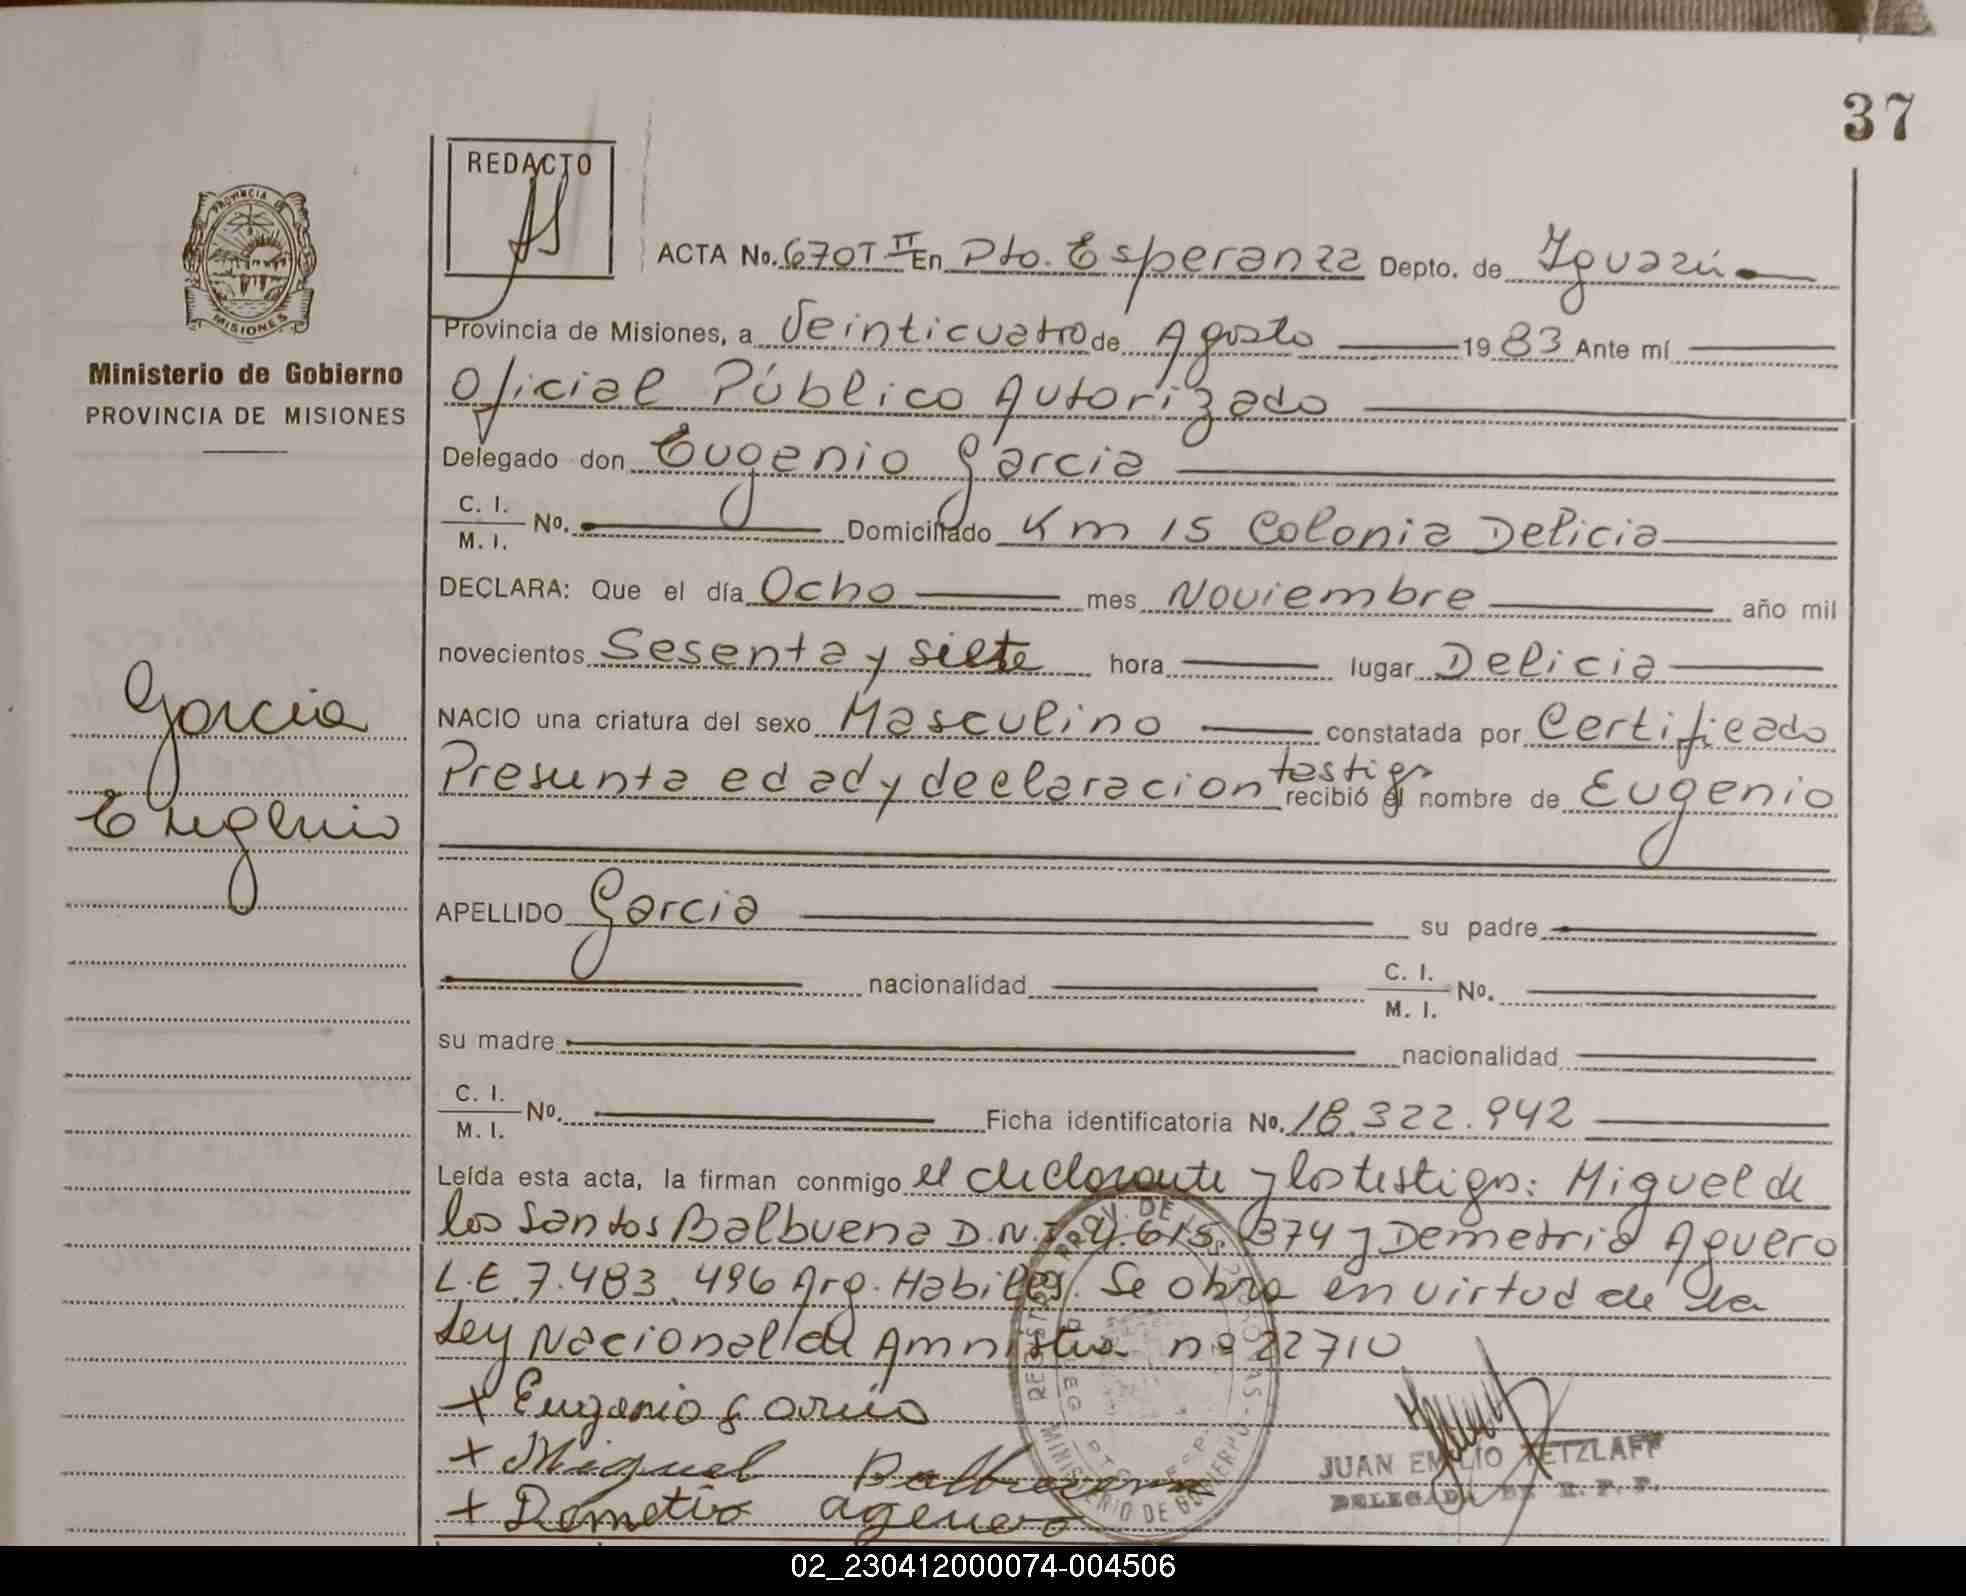 37
REDACTO
PROVINCIA DE
MISIONES
Ministerio de Gobierno
PROVINCIA DE MISIONES
Garcia
Eugenio
ACTA No. 670 T II En Pto. Esperanza Depto. de Iguazú
Provincia de Misiones, a Veinticuatro de Agosto 1983 Ante mí
Oficial Público Autorizado
Delegado don Eugenio Garcia
C. I.
M. I. No. Domiciliado Km 15 Colonia Delicia
DECLARA: Que el día Ocho mes Noviembre año mil
novecientos Sesenta y siete hora lugar Delicia
NACIO una criatura del sexo Masculino constatada por Certificado
Presunta edad y declaracion testigo recibió el nombre de Eugenio
APELLIDO Garcia su padre
nacionalidad C. I. M. I. No.
su madre nacionalidad
C. I. M. I. No. Ficha identificatoria No. 18.322.942
Leída esta acta, la firman conmigo el declarante y los testigos: Miguel de
los Santos Balbuena D.N.I. 615.374 y Demetrio Aguero
L.E 7.483.496 Arg. Habiles. Se obra en virtud de la
Ley Nacional de Amnistia nº 22710
+ Eugenio Garcia
+ Miguel Balbuena
+ Demetrio aguero
MINISTERIO DE GOBIERNO
JUAN EMILIO TETZLAFF
DELEGADO
02_230412000074-004506